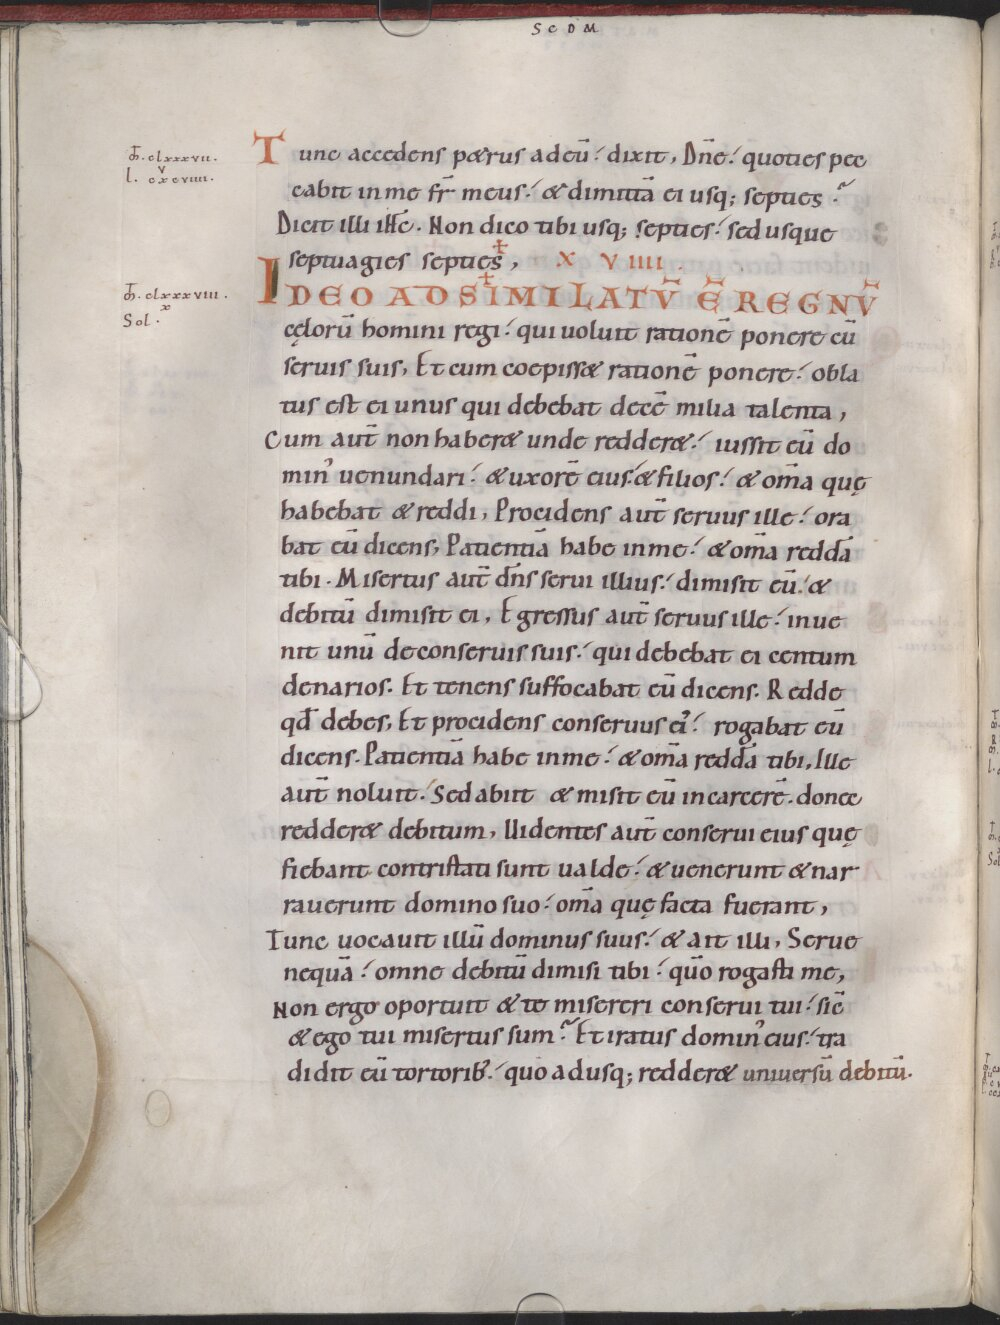 SCDM
Tunc accedens petrus ad eū. dixit, Dn̄e. quoties pec
m̄. clxxxvii.
v
l. cxcviiii.
cabit in me fr̄ meus. & dimittā ei usq; septies.
Dicit illi ih̄c. Non dico tibi usq; septies. sed usque
septuagies septies, XVIIII.
IDEO ADSIMILATŪ Ē REGNŪ
m̄. clxxxviii.
x
Sol.
cęlorū homini regi. qui uoluit rationē ponere cū
seruis suis, Et cum coepiss& rationē ponere. obla
tus est ei unus qui debebat decē milia talenta,
Cum aut̄ non haber& unde redder&. iussit eū do
min' uenundari. & uxorē eius. & filios. & om̄a quę
habebat & reddi, Procidens aut̄ seruus ille. ora
bat eū dicens, Patientiā habe in me. & om̄a reddā
tibi. Misertus aut̄ dn̄s serui illius. dimisit eū. &
debitū dimisit ei, Egressus aut̄ seruus ille. inue
nit unū de conseruis suis. qui debebat ei centum
denarios. Et tenens suffocabat eū dicens. Redde
qd̄ debes, Et procidens conseruus ei'. rogabat eū
dicens. Patientiā habe in me. & om̄a reddā tibi, Ille
aut̄ noluit. Sed abiit & misit eū in carcerē. donec
redder& debitum, Uidentes aut̄ conserui eius quę
fiebant contristati sunt ualde. & uenerunt & nar
rauerunt domino suo. om̄a quę facta fuerant,
Tunc uocauit illū dominus suus. & ait illi, Serue
nequā. omne debitū dimisi tibi. qūo rogasti me,
Non ergo oportuit & te misereri conserui tui. sic̄
& ego tui misertus sum. Et iratus domin' eius. tra
didit eū tortorib. quo adusq; redder& uniuersū debitū.